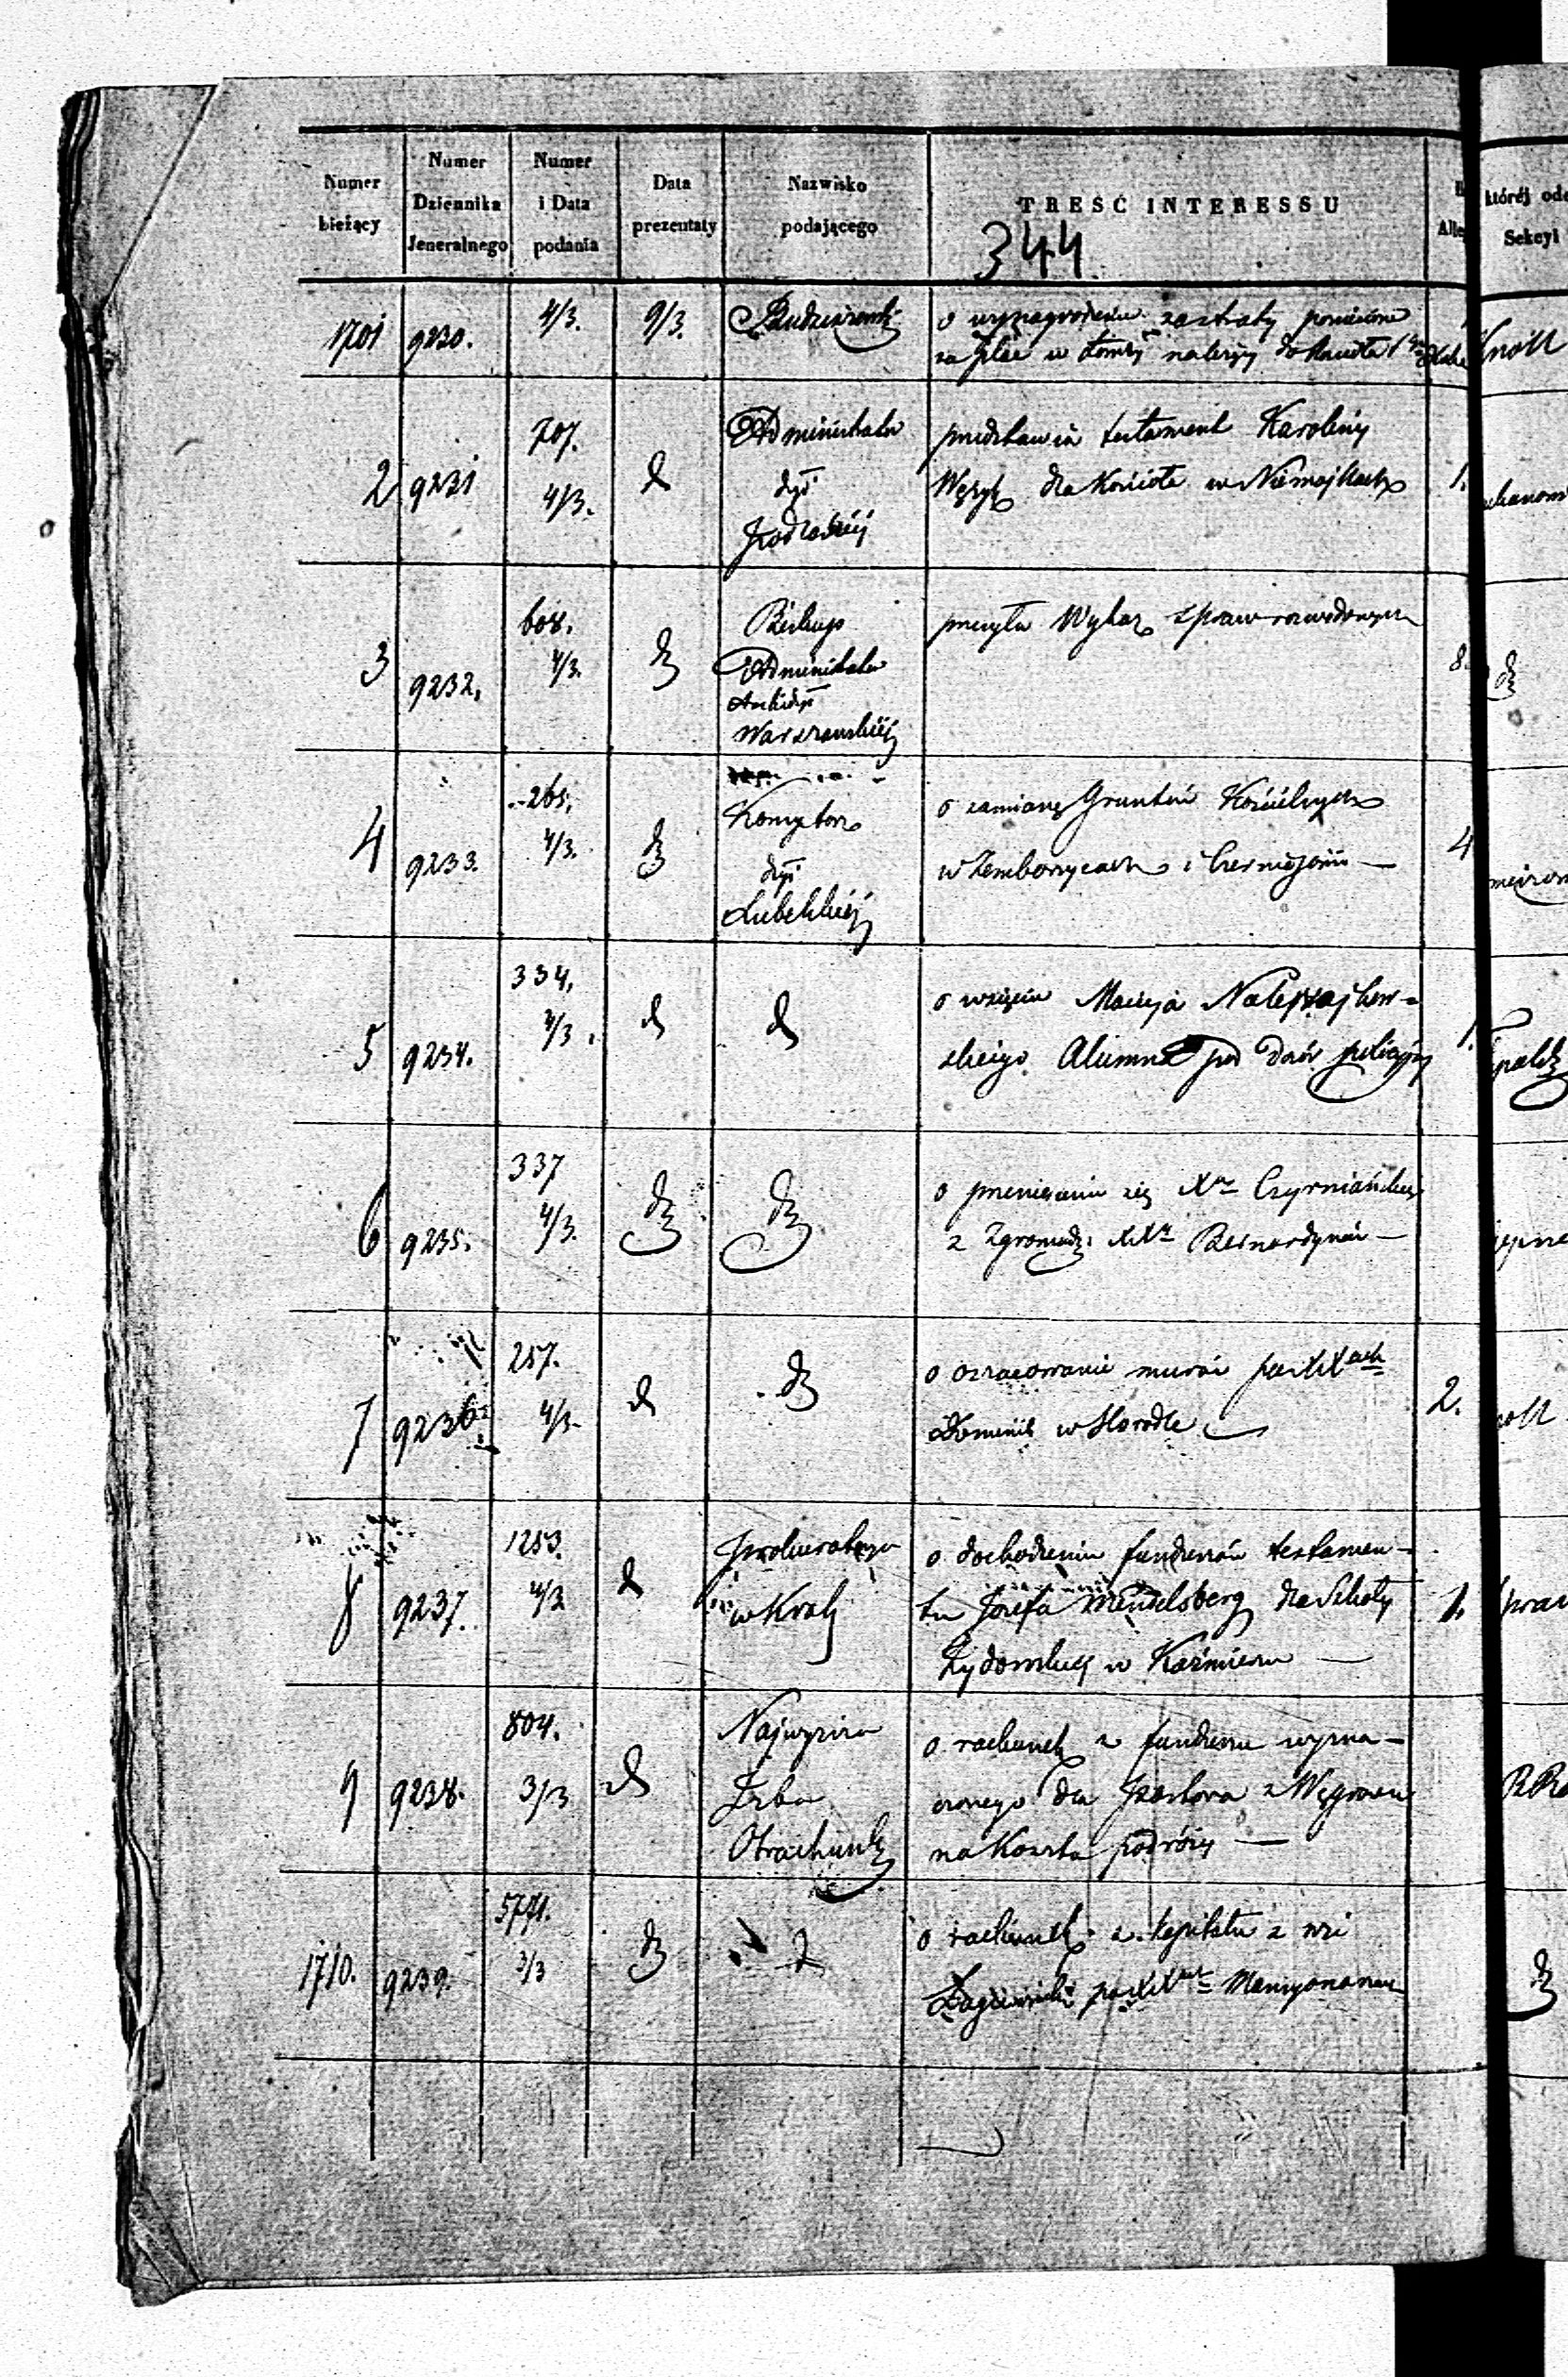 Numer bieżący
Numer Dziennika Jeneralnego
Numer i Data podania
Data prezentaty
Nazwisko podającego
TREŚĆ INTERESSU
Sekcyi
344
1701 9230. 4/3. 9/3.
o wynagrodzenie za straty poniesione
za plac w Łomży należący do Kościoła
2 9231 707. 4/3.
Administrator
dyi
Podlaskiej
przedstawia testament Karoliny
Węzyk dla Kościoła w Niemojkach
1.
3 9232. 608. 4/3. dz
Biskup
Administrator
Archidyi
Warszawskiej
przesyła Wykaz spraw rozwodowych
8.
dz
4 9233. 265. 4/3. dz
Konsystorz
dyi
Lubelskiej
o zamianę Gruntów Kościelnych
w Zemborzycach i Czerniejowie
4
5 9234. 334. 4/3. d
d
o wzięcie Macieja Nalepajkow-
skiego Alumna pod dozór policyjny
1.
6 9235. 337 4/3. dz
dz
o przeniesieniu się Xa Czyrniańskiego
z Zgromadz. XXw Bernardynów
7 9236. 257. 4/3. d
dz
o oszacowanie murów po XXach
Dominik w Horodle
2.
8 9237. 1253. 4/3 d
Prokuratorya
w Król
o dochodzeniu funduszów testamen-
tu Józefa Mendelsberg dla Szkoły
Żydowskiej w Kaźmierzu
1.
9 9238. 804. 3/3 d
Najwyższa
Izba
Obrachunk
o rachunek z funduszu wyzna-
czonego dla Pastora z Węgrowa
na Koszta podróży
1710. 9239. 5771. 3/3 dz
d
o rachunek z kapitału z wsi
po XXach Mansyonarzach
dz